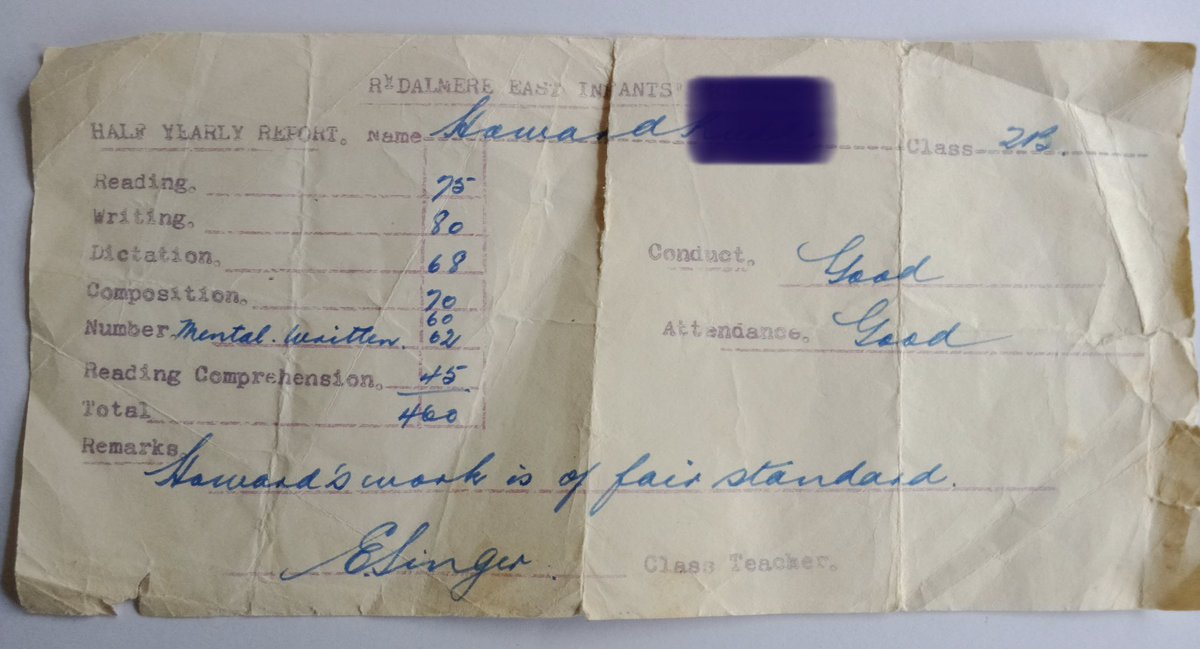 RYDALMERE EAST INFANTS'
HALF YEARLY REPORT. Name Howard Class 2B.
Reading. 75
Writing. 80
Dictation. 68
Conduct. Good
Composition. 70
Number. Mental. Written. 60 62
Attendance. Good
Reading Comprehension. 45
Total 460
Remarks.
Howard's work is of fair standard.
E. Singer. Class Teacher.